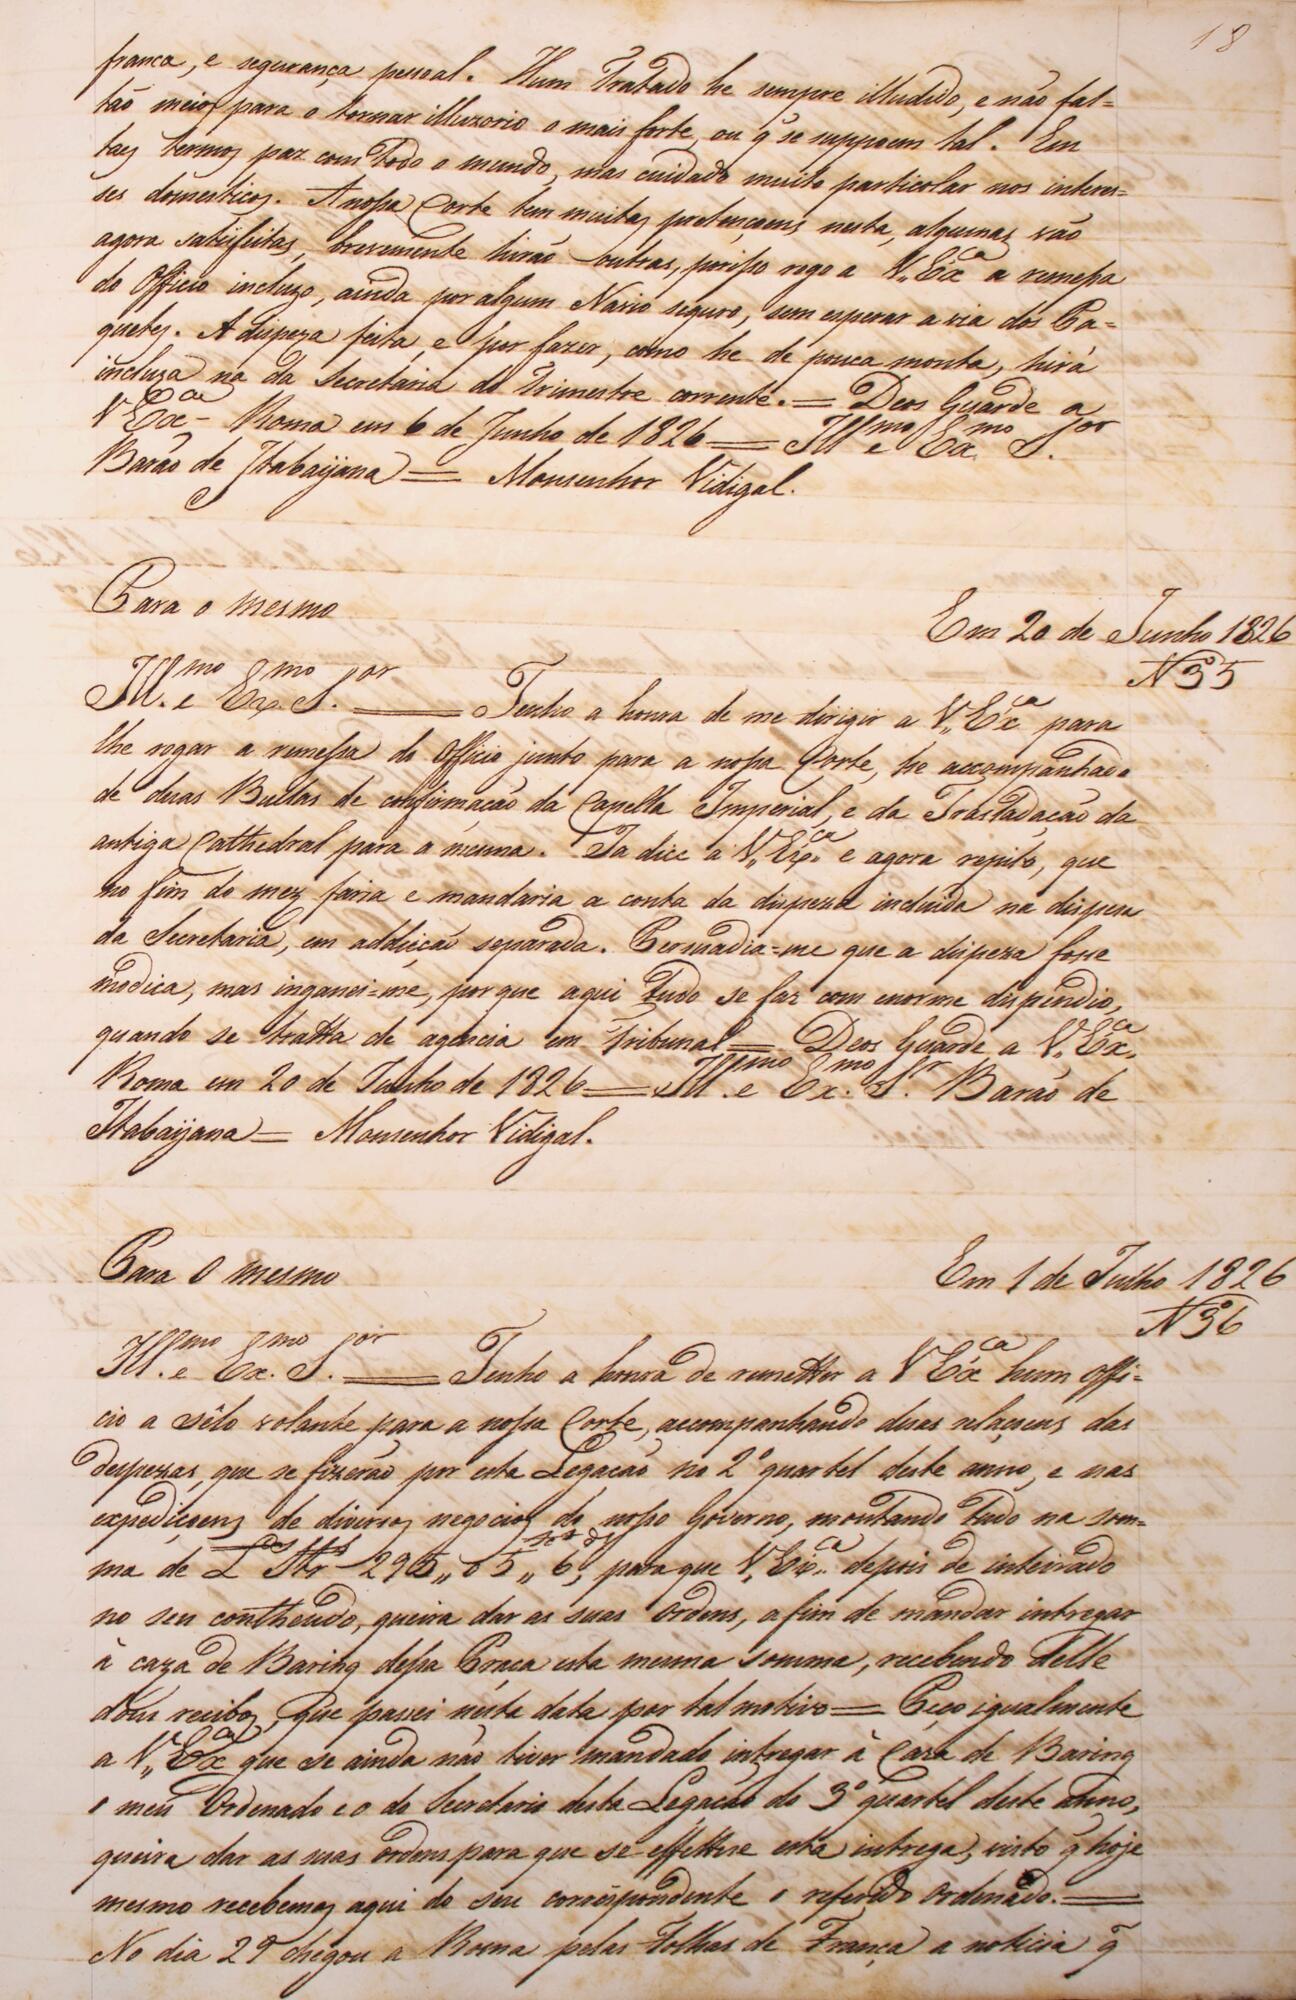 18
franca, e segurança pessoal. Hum Tratado he sempre illudido, e não fal=
tão meios para o tornar illuzorio o mais forte, ou q̃ se suppoem tal. Em
taes termos paz com todo o mundo, mas cuidado muito particolar nos interes=
ses domesticos. A nossa Corte tem muitas pretençoens nesta, algumas vão
agora satisfeitas, brevemente hirão outras, porisso rogo a V. Exca a remessa
do Officio incluzo, ainda por algum Navio seguro, sem esperar a via dos Pa=
quetes. A dispeza feita, e por fazer, como he de pouca monta, hirá
incluza na da Secretaria do Trimestre corrente. = Deos Guarde a
V Exca - Roma em 6 de Junho de 1826 = Illmo e Exmo Sor
Barão de Itabayana = Monsenhor Vidigal.
Para o mesmo
Em 20 de Junho 1826
Nº 35
Illmo e Exmo Sor = Tenho a honra de me dirigir a V. Exca para
lhe rogar a remessa do Officio junto para a nossa Corte, he accompanhado
de duas Bullas de confirmação da Capella Imperial, e da Trasladação da
antiga Cathedral para a mesma. Ja dice a V. Exca e agora repito, que
no fim do mez faria e mandaria a conta da dispeza incluida na dispesa
da Secretaria, em addicção separada. Persuadia=me que a dispeza fosse
modica, mas inganei=me, porque aqui tudo se faz com enorme dispendio,
quando se tratta de agencia em Tribunal = Deos Guarde a V. Exca
Roma em 20 de Junho de 1826 = Illmo e Exmo Sr Barão de
Itabayana = Monsenhor Vidigal.
Para o mesmo
Em 1 de Julho 1826
Nº 36
Illmo e Exmo Sor = Tenho a honra de remetter a V Exca hum Offi-
cio a sêlo volante para a nossa Corte, accompanhando duas relaçoens das
despezas, que se fizerão por esta Legação no 2º quartel deste anno, e nas
expediçoens de diversos negocios do nosso Governo, montando tudo na som=
ma de £ Strs 295,, 05,, 6, para que V. Exca depois de inteirado
no seu contheudo, queira dar as suas Ordens, a fim de mandar intregar
à caza de Baring dessa Praça esta mesma somma, recebendo delle
dous recibos, que passei nesta data por tal motivo = Peço igualmente
a V. Exca que se ainda não tiver mandado intregar à Casa de Baring
o meu Ordenado e o do Secretario desta Legação do 3º quartel deste Anno,
queira dar as suas ordens para que se effettue esta intrega, visto q̃ hoje
mesmo recebemos aqui do seu correspondente o referido Ordenado. =
No dia 29 chegou a Roma pelas Folhas de França a noticia q̃